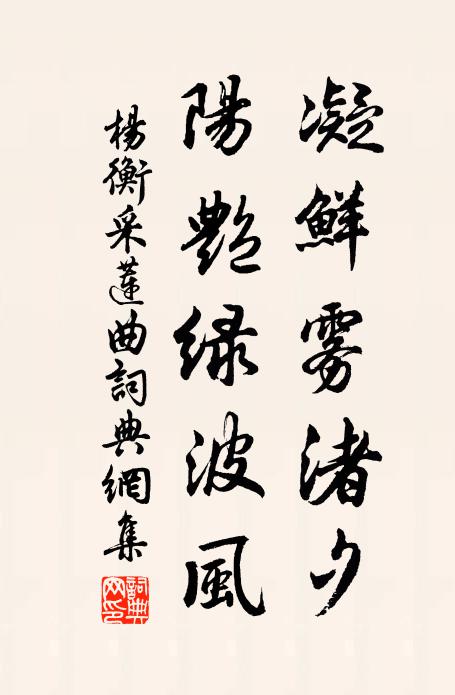 凝鮮霧渚夕
陽艷綠波風
楊衡采蓮曲詞典網集
詞典網印